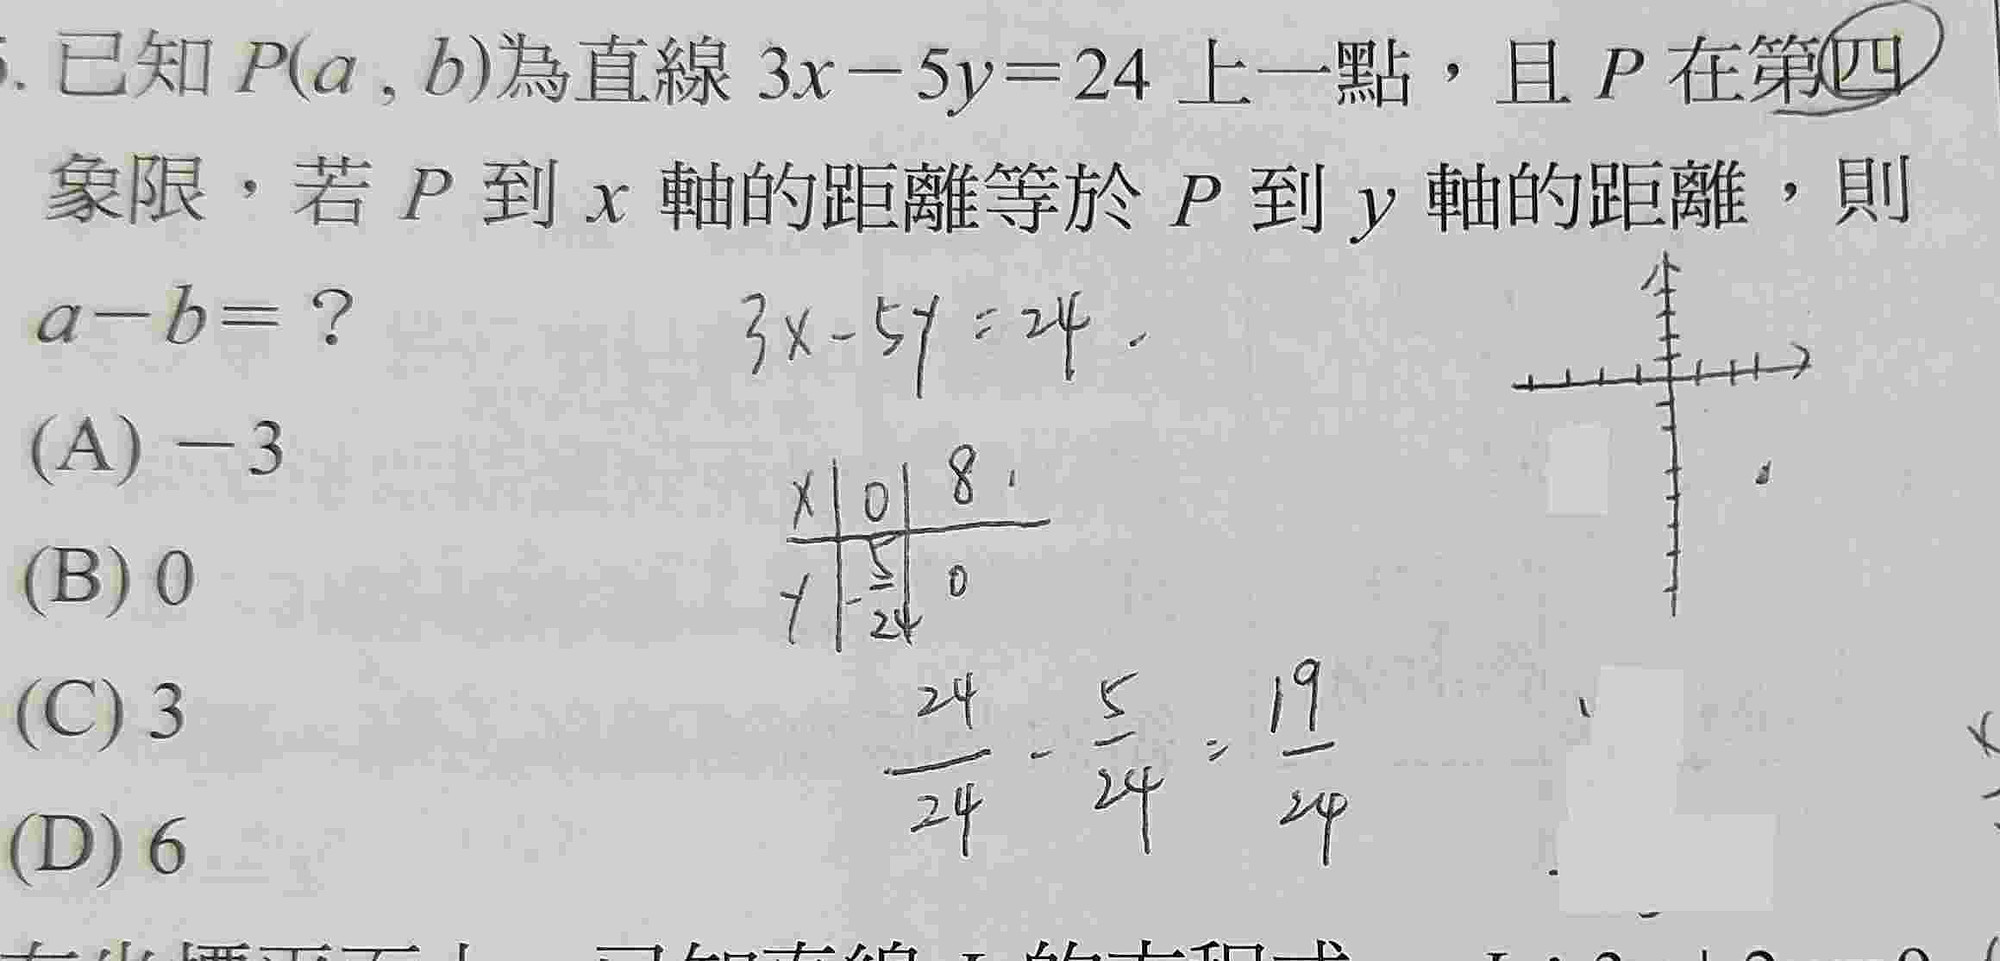 . 已知 P(a , b)為直線 3x－5y＝24 上一點，且 P 在第四
象限，若 P 到 x 軸的距離等於 P 到 y 軸的距離，則
a－b＝？
3x - 5y = 24
(A) －3
x | 0 | 8
(B) 0
y | -5/24 | 0
(C) 3
24/24 - 5/24 = 19/24
(D) 6